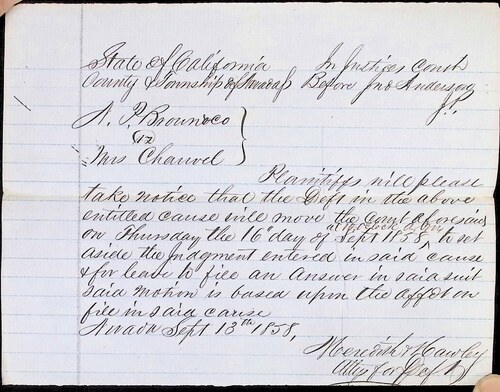 State of California In Justices Court
County & Township of Nevada } Before Jno Anderson
J.P.
A. P. Brown & co
vs
Mrs Chauvel
Plaintiffs will please
take notice that the Deft in the above
entitled cause will move the Court aforesaid
at 10 o'clock A.M.
on Thursday the 16th day of Sept 1858, to set
aside the Judgment entered in said cause
& for leave to file an Answer in said suit
said motion is based upon the affdt on
file in said cause
Nevada Sept 13th 1858,
Meredith & Hawley
Attys for Deft